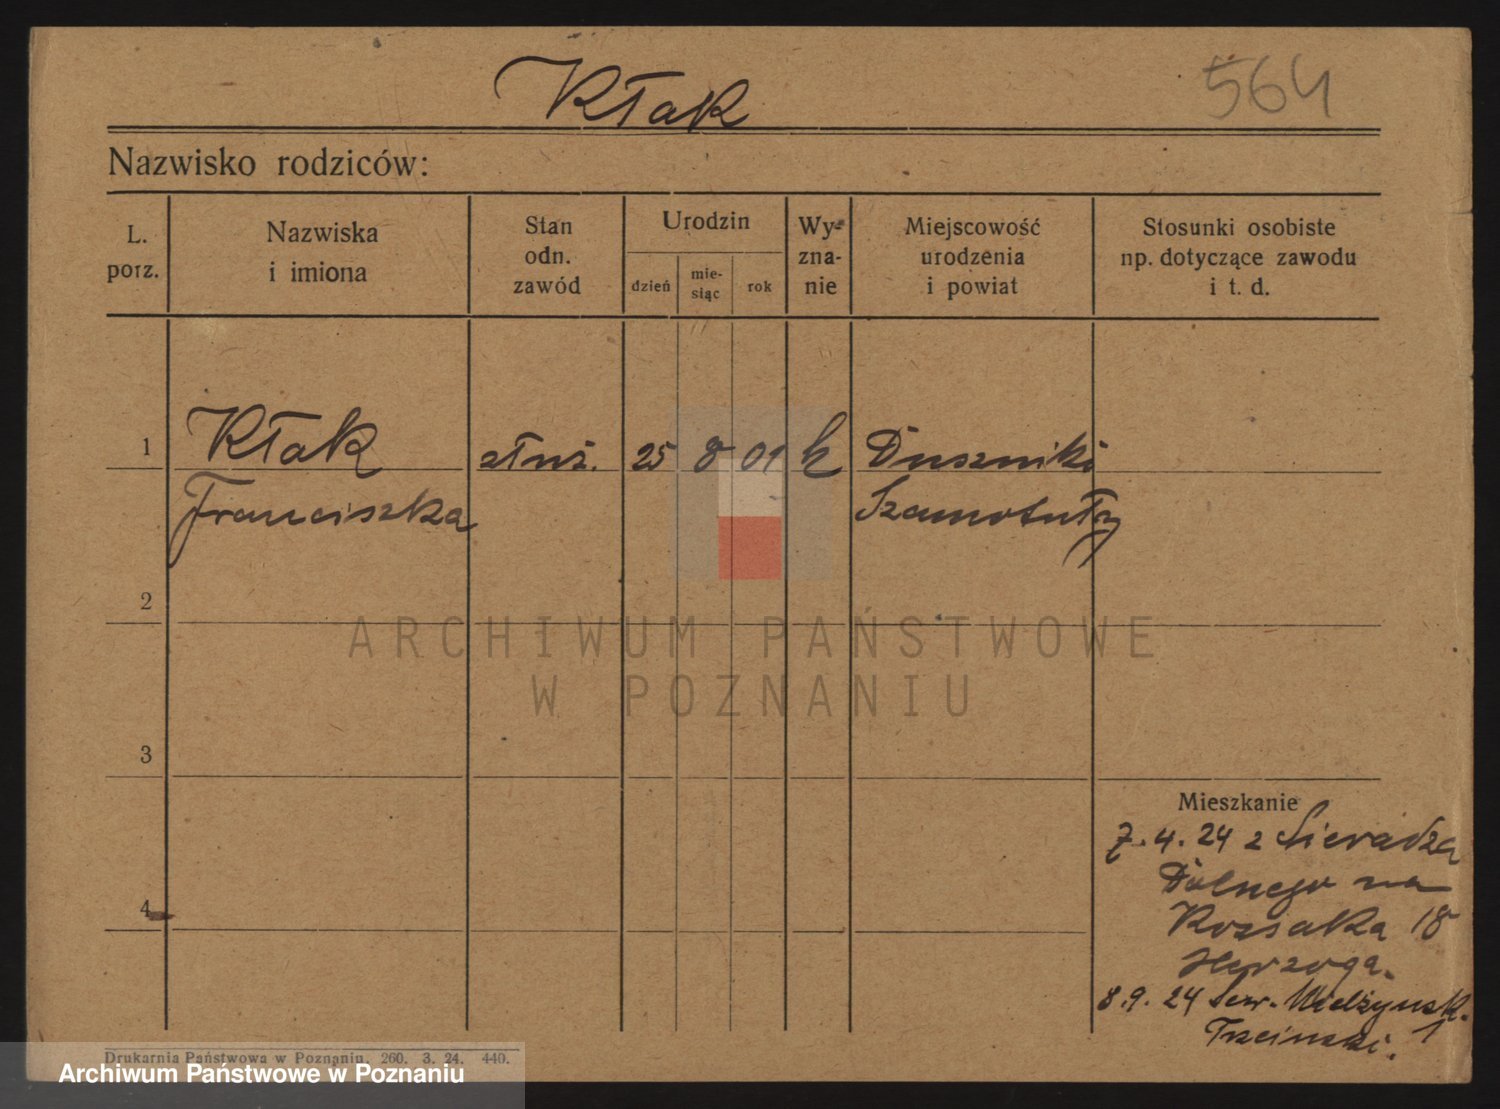 Kłak
564
Nazwisko rodziców:
L. porz.
Nazwiska i imiona
Stan odn. zawód
Urodzin
dzień
mie-siąc
rok
Wy-zna-nie
Miejscowość urodzenia i powiat
Stosunki osobiste np. dotyczące zawodu i t. d.
1 Kłak służ. 25 8 01 k Duszniki
Franciszka Szamotuły
2
ARCHIWUM PAŃSTWOWE
W POZNANIU
3
Mieszkanie
7. 4. 24 z Sieradza
Dolnego na
4
Kossaka 18
Herzoga.
8. 9. 24 Sew. Mielżyńsk. 1
Trzciński.
Drukarnia Państwowa w Poznaniu. 260. 3. 24. 440.
Archiwum Państwowe w Poznaniu